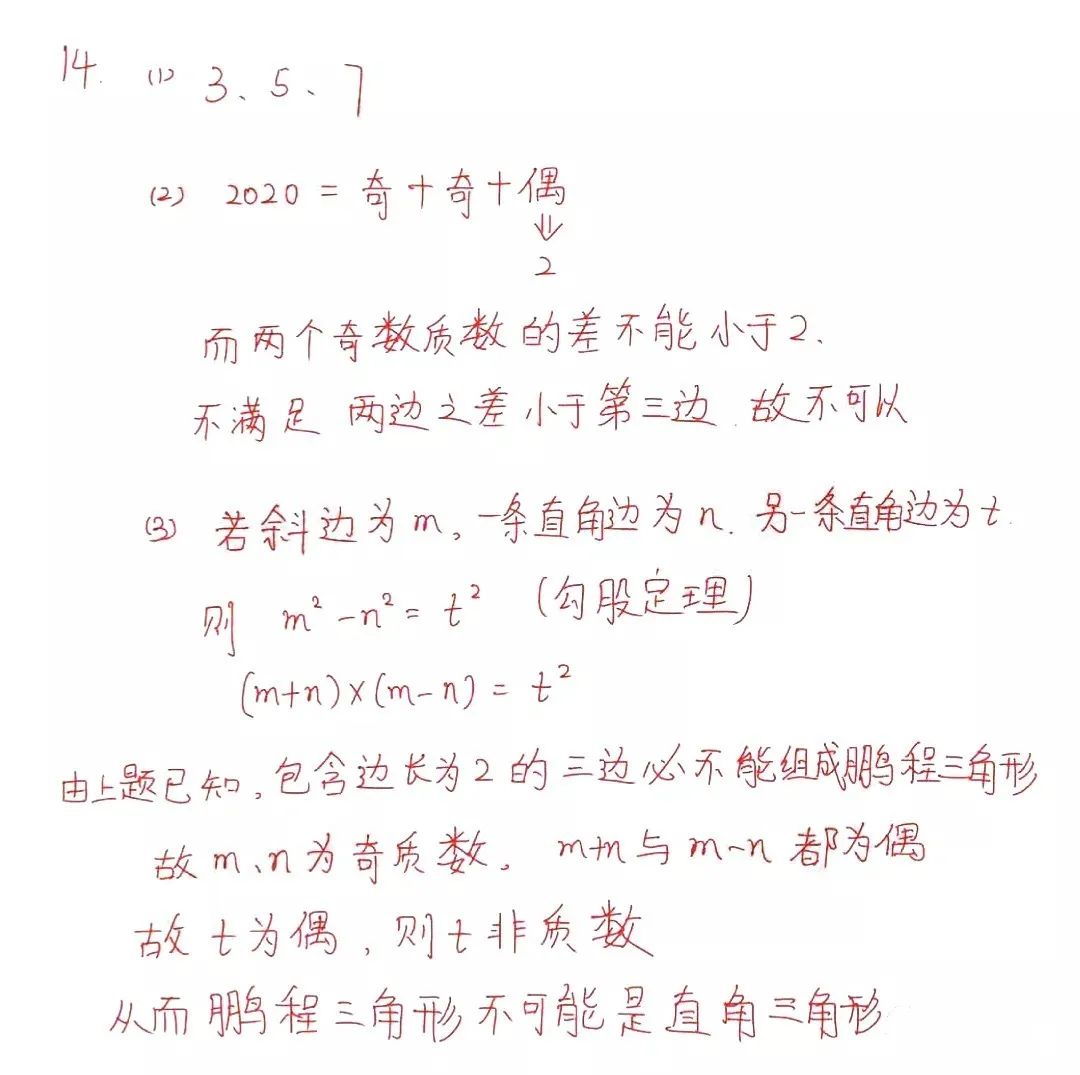 14. (1) 3、5、7
(2) 2020 = 奇+奇+偶
⇓
2
而两个奇数质数的差不能小于2.
不满足 两边之差小于第三边.故不可以
(3) 若斜边为m,一条直角边为n.另一条直角边为t.
则 m²-n²= t² (勾股定理)
(m+n)×(m-n) = t²
由上题已知,包含边长为2的三边必不能组成鹏程三角形
故m、n为奇质数. m+n与m-n都为偶
故t为偶,则t非质数
从而鹏程三角形不可能是直角三角形